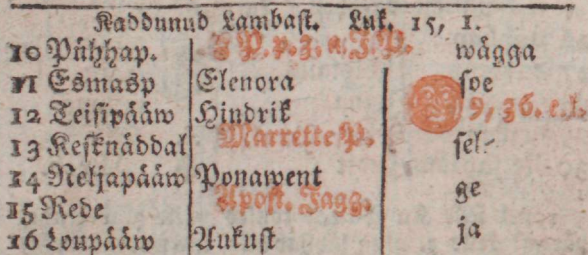 Kaddunud Lambast. Luk. 15, 1.
10 Pühhap. 3 P. p. 3. a. J. P. wägga
11 Esmasp Elenora soe
12 Teisipääw Hindrik 9, 36. e. l.
13 Kesknäddal Marrette P. sel-
14 Neljapääw Ponawent ge
15 Rede Apost. Jagg.
16 Loupääw Aukust ja